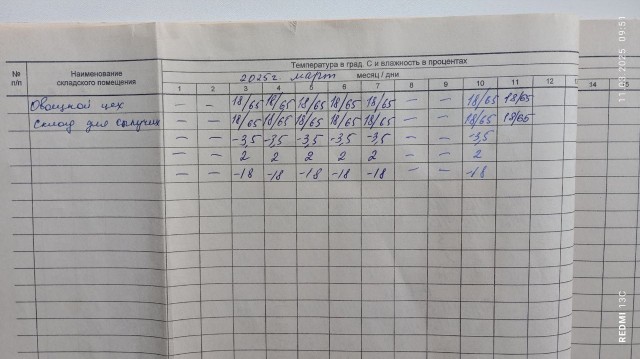 Температура в град. С и влажность в процентах
№ п/п Наименование складского помещения 2025г. март месяц / дни
1 2 3 4 5 6 7 8 9 10 11 12 14 15
Овощной цех — — 18/65 18/65 18/65 18/65 18/65 — — 18/65 18/65
Склад для сыпучих — — 18/65 18/65 18/65 18/65 18/65 — — 18/65 18/65
— — -3,5 -3,5 -3,5 -3,5 -3,5 — — -3,5
— — 2 2 2 2 2 — — 2
— — -18 -18 -18 -18 -18 — — -18
REDMI 13C